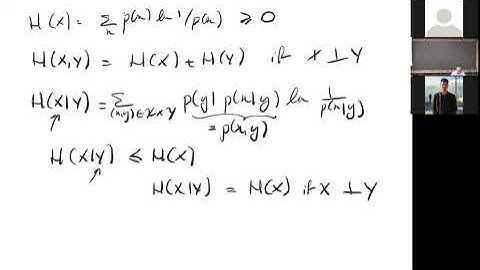 H(x) = Σ_x p(x) ln 1/p(x) ⩾ 0
H(X,Y) = H(X) + H(Y) if X ⊥ Y
H(X|Y) = Σ_{(x,y)∈X×Y} p(y) p(x|y) ln 1/p(x|y)
= p(x,y)
H(X|Y) ≤ H(X)
H(X|Y) = H(X) if X ⊥ Y